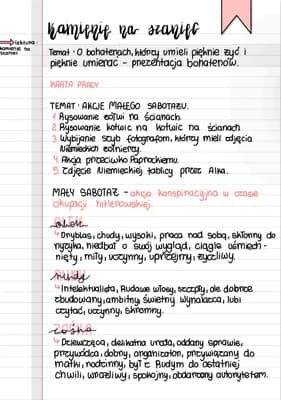 Kamienie na szaniec
Lektura:
Kamienie na
szaniec
Temat: O bohaterach, którzy umieli pięknie żyć i
pięknie umierać - prezentacja bohaterów.
KARTA PRACY
TEMAT: AKCJE MAŁEGO SABOTAŻU.
1. Rysowanie żółwi na ścianach.
2. Rysowanie kotwic na kotwic na ścianach
3. Wybijanie szyb fotografom, którzy mieli zdjęcia
Niemieckich żołnierzy.
4. Akcja przeciwko Paprockiemu.
5. Zdjęcie Niemieckiej tablicy przez Alka.
MAŁY SABOTAŻ - akcja konspiracyjna w czasie
okupacji hitlerowskiej.
ALEK
alek
Dryblas, chudy, wysoki, praca nad sobą, skłonny do
ryzyka, niedbał o swój wygląd, ciągle uśmiech-
nięty, miły, uczynny, uprzejmy, życzliwy.
RUDY
rudy
Intelektualista, Rudawe włosy, szczupły, ale dobrze
zbudowany, ambitny, świetny wynalazca, lubi
czytać, uczynny, skromny.
ZOŚKA
zośka
Dziewczęca, delikatna uroda, oddany sprawie,
przywódca, dobry, organizator, przywiązany do
matki, rodzinny, był z Rudym do ostatniej
chwili, wrażliwy, spokojny, obdarzony autorytetem.